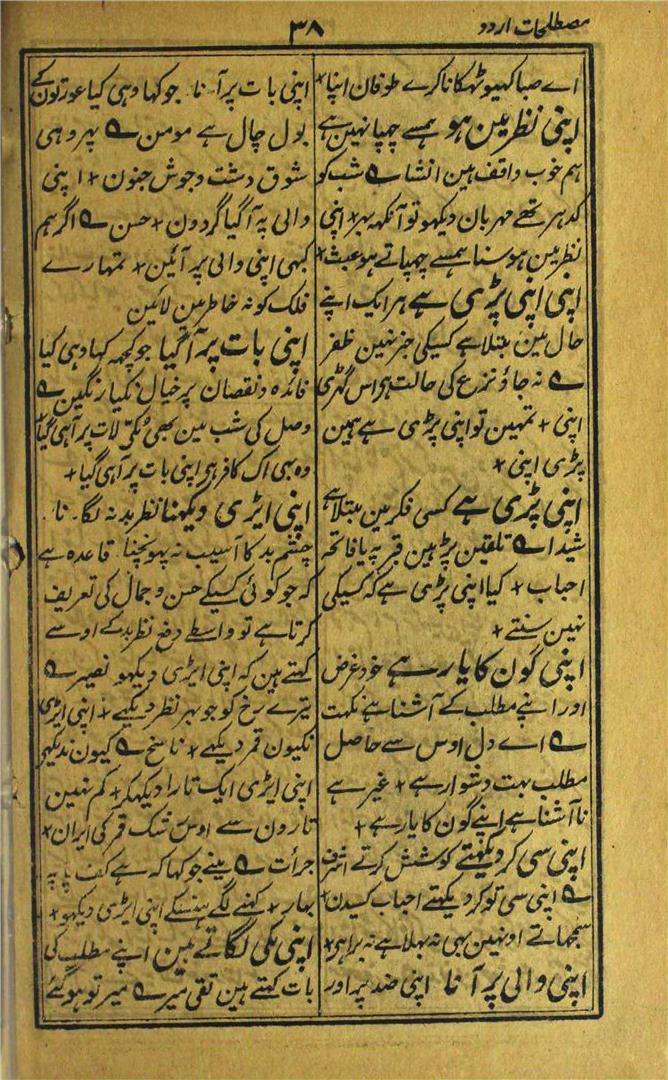 مصطلحات اردو
۳۸
اے صبا کہیو ٹہکانا کرے طوفان اپنا +
اپنی نظر مین ہو ہمسے چہپا نہین ہے
ہم خوب واقف ہین انشا ؎ شب کو
کدہر تھے مہربان دیکہو تو آنکہہ بہر + اپنی
نظر مین ہو سنا ہمسے چہپاتے ہو عبث +
اپنی اپنی پڑی ہے ہر ایک اپنے
حال مین مبتلا ہے کسیکی خبر نہین ظفر
؎ نہ جاؤ نزع کی حالت ہی اس گہڑی
اپنی + تمہین تو اپنی پڑی ہے ہمین
پڑی اپنی +
اپنی پڑی ہے کسی فکر مین مبتلا ہے
شیدا ؎ تلقین پڑہین قبر پہ یا فاتحہ
احباب + کیا اپنی پڑی ہے کہ کسیکی
نہین سنتے +
اپنی گون کا یار ہے خود غرض
اور اپنے مطلب کے آشنا ہے نکہت
؎ اے دل اوس سے حاصل
مطلب بہت دشوار ہے + غیر ہے
نا آشنا ہے اپنے گون کا یار ہے +
اپنی سی کر دیکہتے کوشش کرتے اشرف
؎ اپنی سی تو کر دیکہتے احباب کسیدن +
سمجہاتے اونہین بہی نہ بہلا ہے نہ برا ہی +
اپنی والی پر آنا اپنی ضد پہ اور
اپنی بات پر آنا۔ جو کہا وہی کیا عورتون کے
بول چال ہے مومن ؎ پہر وہی
شوق دشت و جوش جنون + اپنی
والی پہ آ گیا گردون + حسن ؎ اگر ہم
کبہی اپنی والی پر آئین + تمہارے
فلک کو نہ خاطر مین لائین
اپنی بات پر آگیا جو کچہہ کہا وہی کیا
فائدہ و نقصان پر خیال نکیا رنگین ؎
وصل کی شب مین بھی لات پر آہی گیا +
وہ بہی اک کافر ہی اپنی بات پر آہی گیا +
اپنی ایڑی دیکہنا نظر بد نہ لگانا۔
چشم بد کا آسیب نہ پہونچنا۔ قاعدہ ہے
کہ جو کوئی کسیکے حسن و جمال کی تعریف
کرتا ہے تو واسطے دفع نظر بد کے اوسے
کہتے ہین کہ اپنی ایڑی دیکہو نصیر ؎
تیرے رخ کو جو بہر نظر دیکہے + اپنی ایڑی
نکیون قمر دیکہے + ناسخ ؎ کیون ندیکہی
اپنی ایڑی ایک تارا دیکہکر + کم نہین
تارون سے اوس رشک قمر کی ایران +
جرأت ؎ مینے جو کہا کہ ہے کف پا پہ
بہار + کہنے لگے ہنسکے اپنی ایڑی دیکہو +
اپنی ہی لگاتے ہین اپنے مطلب کی
بات کہتے ہین تقی میر ؎ میر تو ہو گئے